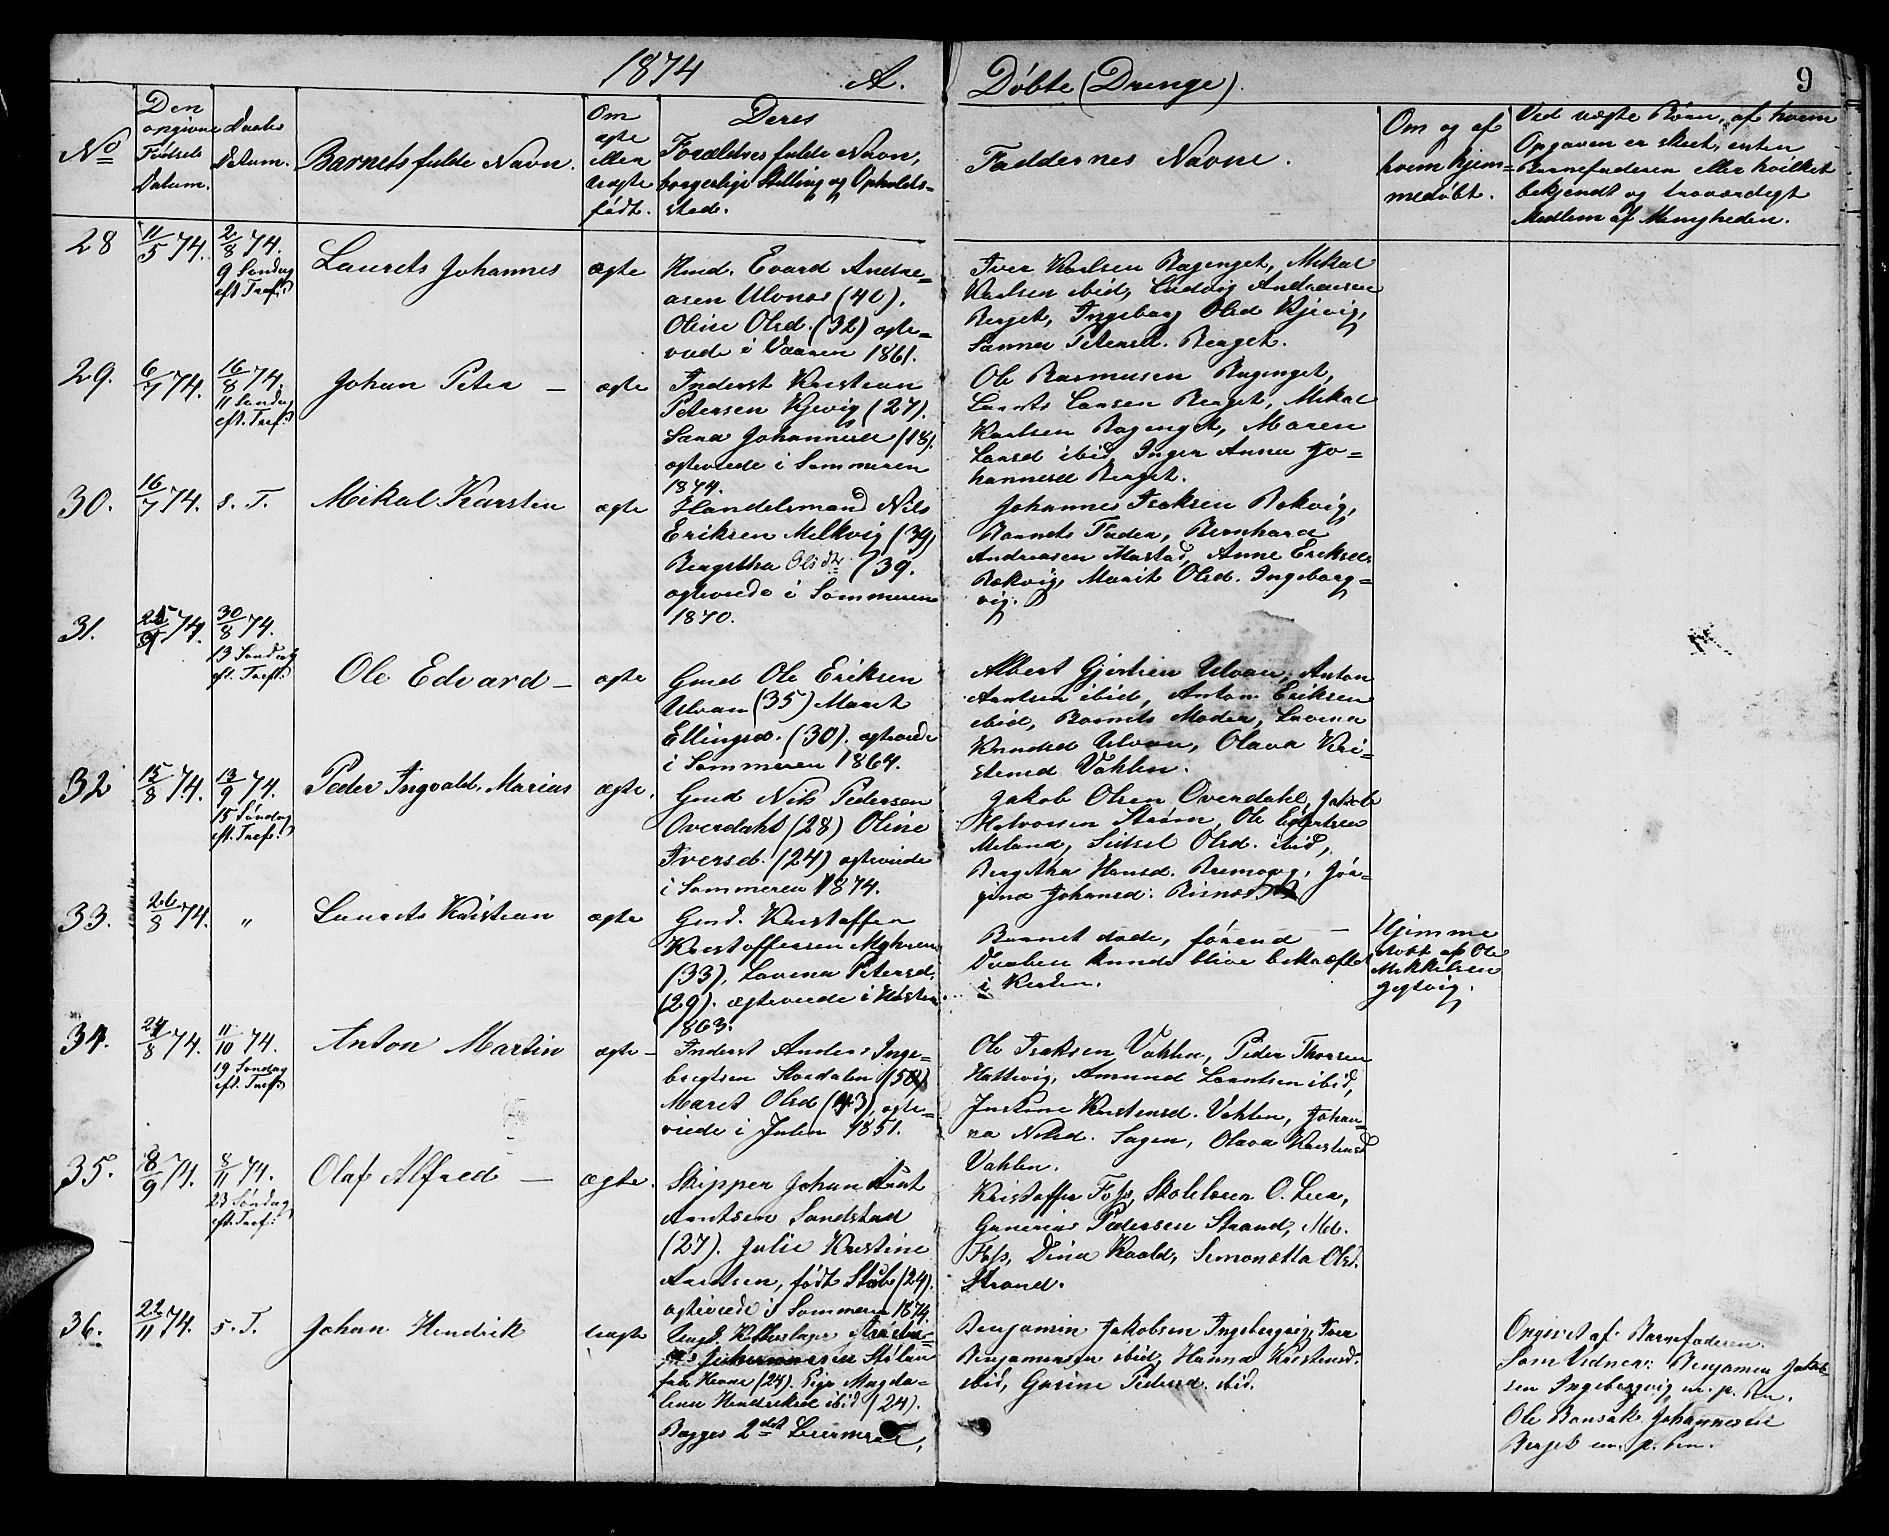 1874 A. Døbte (Drenge). 9
No
Den opgivne Fødsels Datum.
Daabs Datum.
Barnets fulde Navn.
Om ægte eller uægte født.
Deres Forældres fulde Navn, borgerlige Stilling og Opholds-
sted.
Faddernes Navne.
Om og af hvem hjem-
medøbt.
Ved uægte Børn, af hvem
Opgaven er skeet, enten
Barnefaderen eller hvilket
bekjendt og troværdigt
Medlem af Menigheden.
28 11/5 74. 2/8 74. 9 Søndag eft. Tref: Laurets Johannes ægte
Hmd. Evard Andre-
asen Ulvnes (40).
Oline Olsd. (32) ægte-
viede i Vaaren 1861.
Iver Karlsen Bagenget, Mikal
Karlsen ibid, Ludvig Andreasen
Berget, Ingeborg Olsd Kjevig,
Sanna Petersd. Berget.
29. 6/7 74. 16/8 74. 11 Søndag eft. Tref: Johan Peter — ægte
Inderst Kristian
Petersen Kjevig (27).
Sara Johannesd (18).
ægteviede i Sommeren
1874.
Ole Rasmusen Bagenget,
Larsen Berget, Mikal
Karlsen Bagenget, Maren
Larsd ibid, Inger Anna Jo-
hannesd Berget.
30. 16/7 74. s. T. Mikal Karsten ægte
Handelsmand Nils
Eriksen Melkvig (39)
Bergitha Olsdtr (39.
ægteviede i Sommeren
1870.
Johannes Isaksen Rokvig,
Barnets Fader, Bernhard
Andreasen Mastad, Anne Eriksd.
Rokvig, Marit Olsd. Ingeborg-
vig.
31. 74. 30/8 74. 13 Søndag eft. Tref: Ole Edvard — ægte
Gmd Ole Eriksen
Ulvan (35) Maret
Ellingsd. (30). ægteviede
i Sommeren 1864.
Albert Gjertsen Ulvan, Anton
Arntsen ibid, Anton Eriksen
ibid, Barnets Moder, Lavina
Knudsd Ulvan, Olava Kri-
stensd Vahlen.
32 15/8 74. 13/9 74. 15 Søndag eft. Tref: Peder Ingvald Marius ægte.
Gmd Nils Pedersen
Overdahl (28) Oline
Iversd. (24) ægteviede
i Sommeren 1874.
Jakob Olsen Overdahl, Jakob
Halvorsen Strøm, Ole
Meland, Sidsel Olsd. ibid,
Bergitha Hansd. Bremvag, Jør-
gina Johansd:
33. 26/8 74. „ Laurets Kristian ægte
Gmd. Kristoffer
Kristoffersen
(33), Lovina Petersd.
(29). ægteviede i Høsten
1863.
Barnet døde, førend —
Daaben kunde blive bekræftet
i Kirken.
Hjemme
døbt af Ole
Mikkelsen
34. 24/8 74. 11/10 74. 19 Søndag eft. Tref: Anton Martin ægte —
Inderst Anders Inge-
brigtsen Stordalen (50)
Maret Olsd (43), ægte-
viede i Julen 1851.
Ole Isaksen Vahlen, Peder Thorsen
Hattevig, Amund Larntsen ibid,
Justine Kristensd. Vahlen, Johan-
na Nilsd. Sagen, Olava Kristensd
Vahlen.
35. 8/9 74. 8/11 74. 23 Søndag eft. Tref: Olaf Alfred — ægte.
Skipper Johan Arnt
Arntsen Sandstad
(27). Julie Kristine
Arntsen, født Støb (24).
ægteviede i Sommeren 1874
Kristoffer Foss, Skolelærer O. Lien,
Gunerius Pedersen Strand, Md.
Foss, Dina Kaald, Simonetta Olsd.
Strand.
36. 22/11 74. s. T. Johan Hendrik uægte
Ungk. Johannesen Stølan
fra Hevne (24). Pige Magda-
lena Hendriksd ibid (24).
Begges 2det Leiermaal.
Benjamin Jakobsen Ingebergvig, Iver
Benjaminsen ibid, Hanna Kristensd.
ibid, Gurine Pedersd. ibid.
Opgivet af Barnefaderen.
Som Vidner: Benjamin Jakob-
sen Ingebergvig m. p. Pen.
Ole Johannessen
Berget m. p. Pen.